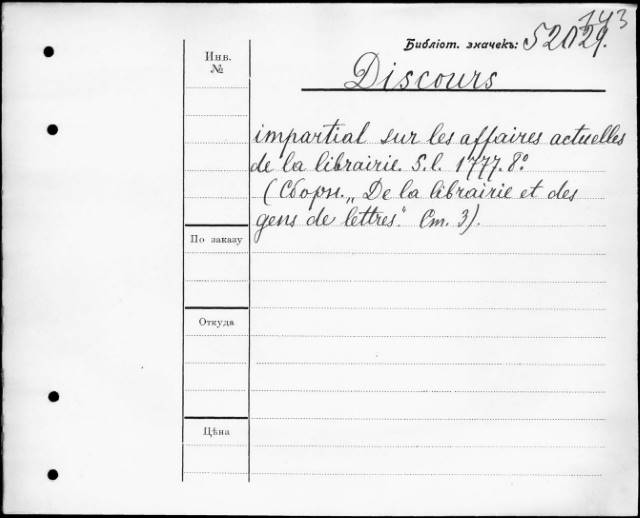 143
Библіот. значекъ: 52029.
Инв.
№
Discours
impartial sur les affaires actuelles
de la librairie. S. l. 1777. 8º
(Сборн. „De la librairie et des
gens de lettres.“ Ст. 3).
По заказу
Откуда
Цѣна